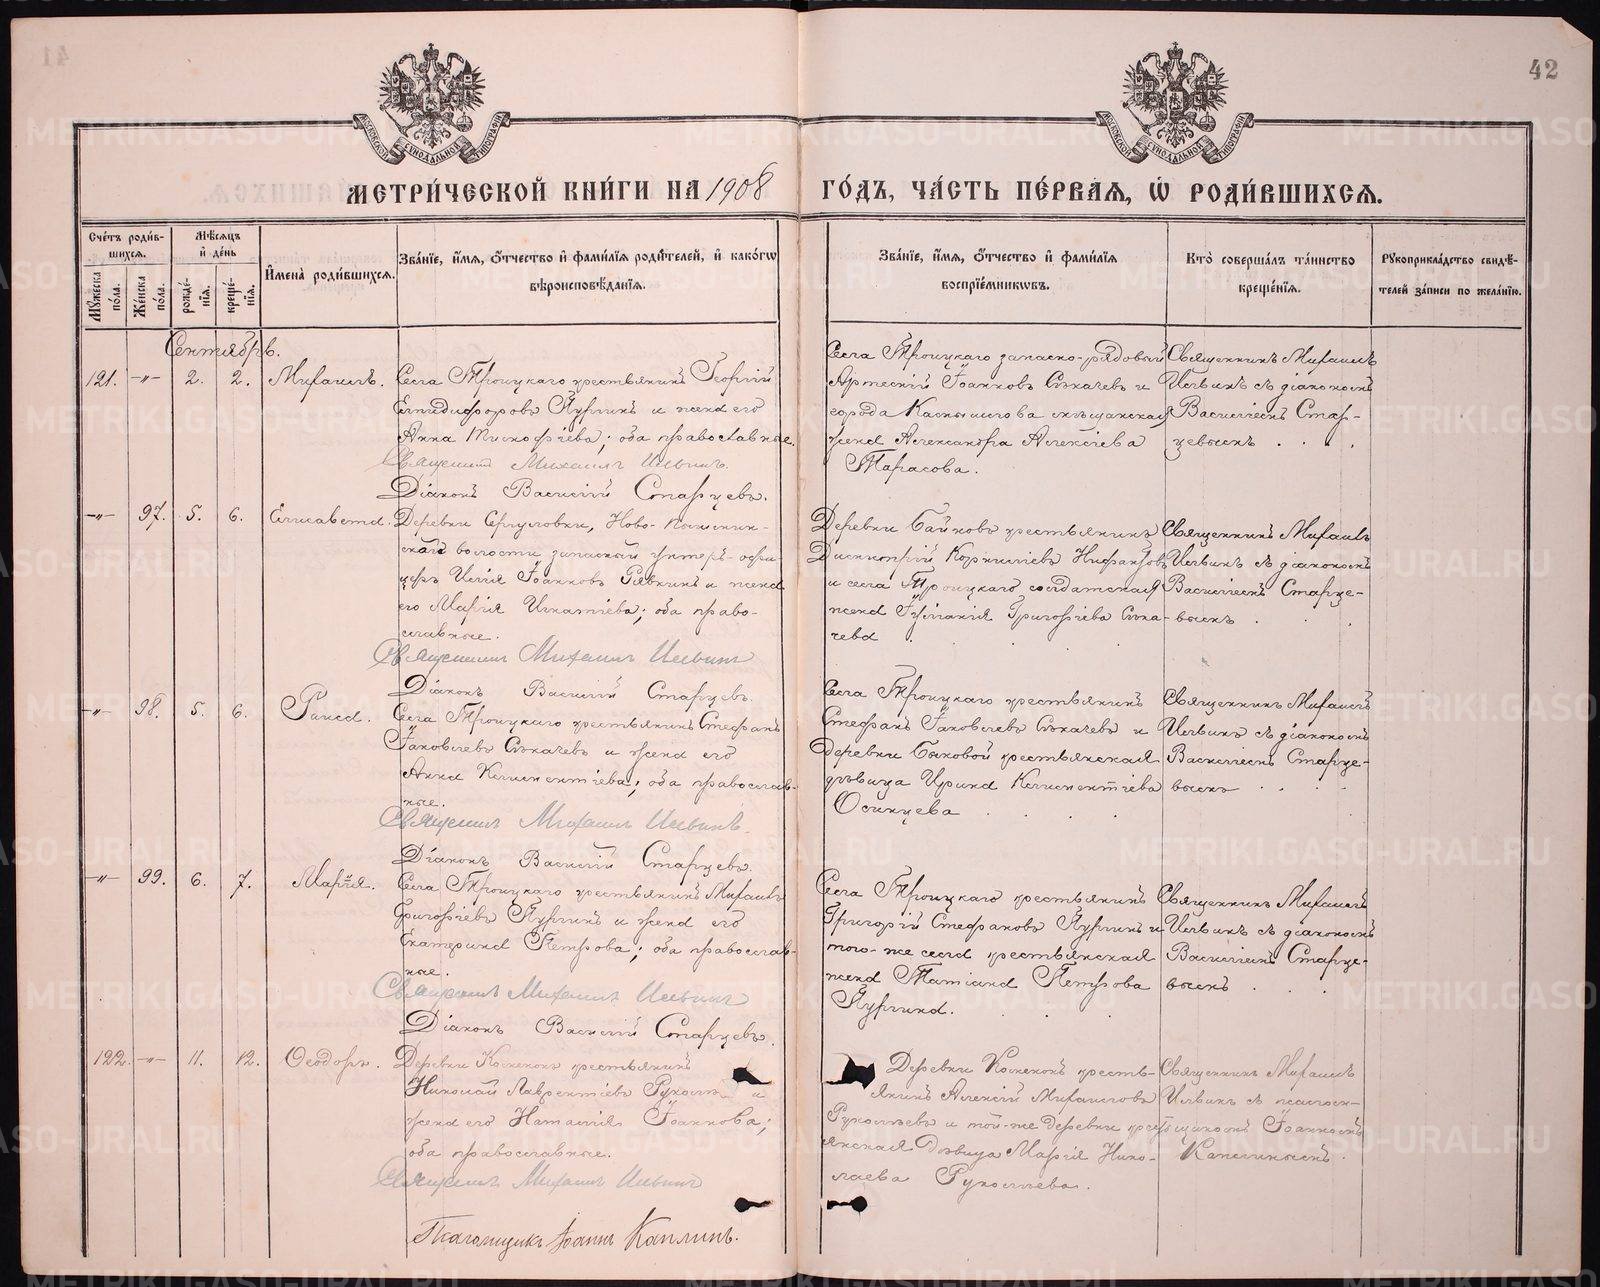 41
42
МОСКОВСКОЙ СѴНОДАЛЬНОЙ ТИПОГРАФІИ
МОСКОВСКОЙ СѴНОДАЛЬНОЙ ТИПОГРАФІИ
МЕТРИ́ЧЕСКОЙ КНИ́ГИ НА 1908 ГО́ДЪ, ЧА́СТЬ ПЕ́РВАЯ, Ѡ РОДИ́ВШИХСЯ.
Сче́тъ роди́в-
шихся.
Мѣ́сяцъ
и де́нь
Мꙋ́жеска по́ла.
Же́нска по́ла.
рожде́-
нїя.
креще́-
нїя.
И́мена роди́вшихся.
Зва́нїе, и́мя, ѻ́тчество и фами́лїя роди́телей, и како́гѡ
вѣроисповѣ́данїя.
Зва́нїе, и́мя, ѻ́тчество и фами́лїя
воспрїе́мникѡвъ.
Кто̀ соверша́лъ та́инство
креще́нїя.
Рꙋкоприкла́дство свидѣ́-
телей за́писи по жела́нїю.
Сентябрь.
121. -„- 2. 2. Михаилъ.
Села Троицкаго крестьянинъ Георгій
Елпидифоровъ Пургинъ и жена его
Анна Тимофѣева; оба православные.
Священникъ Михаилъ Ильинъ.
Діаконъ Василій Старцевъ.
Села Троицкаго запасно-рядовый
Артемій Іоанновъ Сыкачевъ и
города Камышлова мѣщанская
жена Александра Алексіева
Тарасова.
Священникъ Михаилъ
Ильинъ съ діакономъ
Василіемъ Стар-
цевымъ . . .
-„- 97. 5. 6. Елисавета.
Деревни Сергуловки, Ново-
ской волости запасный унтеръ-офи-
церъ Илія Іоанновъ Рявкинъ и жена
его Марія Игнатіева; оба право-
славные.
Священникъ Михаилъ Ильинъ
Діаконъ Василій Старцевъ.
Деревни крестьянинъ
Димитрій Корниліевъ
и села Троицкаго солдатская
жена Іуліанія Григоріева Сыка-
чева .
Священникъ Михаилъ
Ильинъ съ діакономъ
Василіемъ Старце-
вымъ . . .
-„- 98. 5. 6. Раиса.
Села Троицкаго крестьянинъ Стефанъ
Іаковлевъ Сыкачевъ и жена его
Анна Климентіева; оба православ-
ные.
Священникъ Михаилъ Ильинъ.
Діаконъ Василій Старцевъ.
Села Троицкаго крестьянинъ
Стефанъ Іаковлевъ Сыкачевъ и
деревни Быковой крестьянская
дѣвица Ирина Климентіева
Осинцева . . .
Священникъ Михаилъ
Ильинъ съ діакономъ
Василіемъ Старце-
вымъ . . .
-„- 99. 6. 7. Марія.
Села Троицкаго крестьянинъ Михаилъ
Григоріевъ Пургинъ и жена его
Екатерина Петрова; оба православ-
ные.
Священникъ Михаилъ Ильинъ
Діаконъ Василій Старцевъ.
Села Троицкаго крестьянинъ
Григорій Стефановъ Пургинъ и
того-же села крестьянская
жена Татіана Петрова
Пургина. . .
Священникъ Михаилъ
Ильинъ съ діакономъ
Василіемъ Старце-
вымъ . . .
122. -„- 11. 12. Ѳеодоръ.
Деревни крестьянинъ
Николай Лаврентіевъ и
жена его Наталія Іоаннова;
оба православные.
Священникъ Михаилъ Ильинъ
Псаломщикъ Іоаннъ Каплинъ.
Деревни кресть-
янинъ Алексій Михаиловъ
и той-же деревни крест-
янская дѣвица Марія Нико-
лаева
Священникъ Михаилъ
Ильинъ съ псалом-
щикомъ Іоанномъ
Каплинымъ.
METRIKI.GASO-URAL.RU